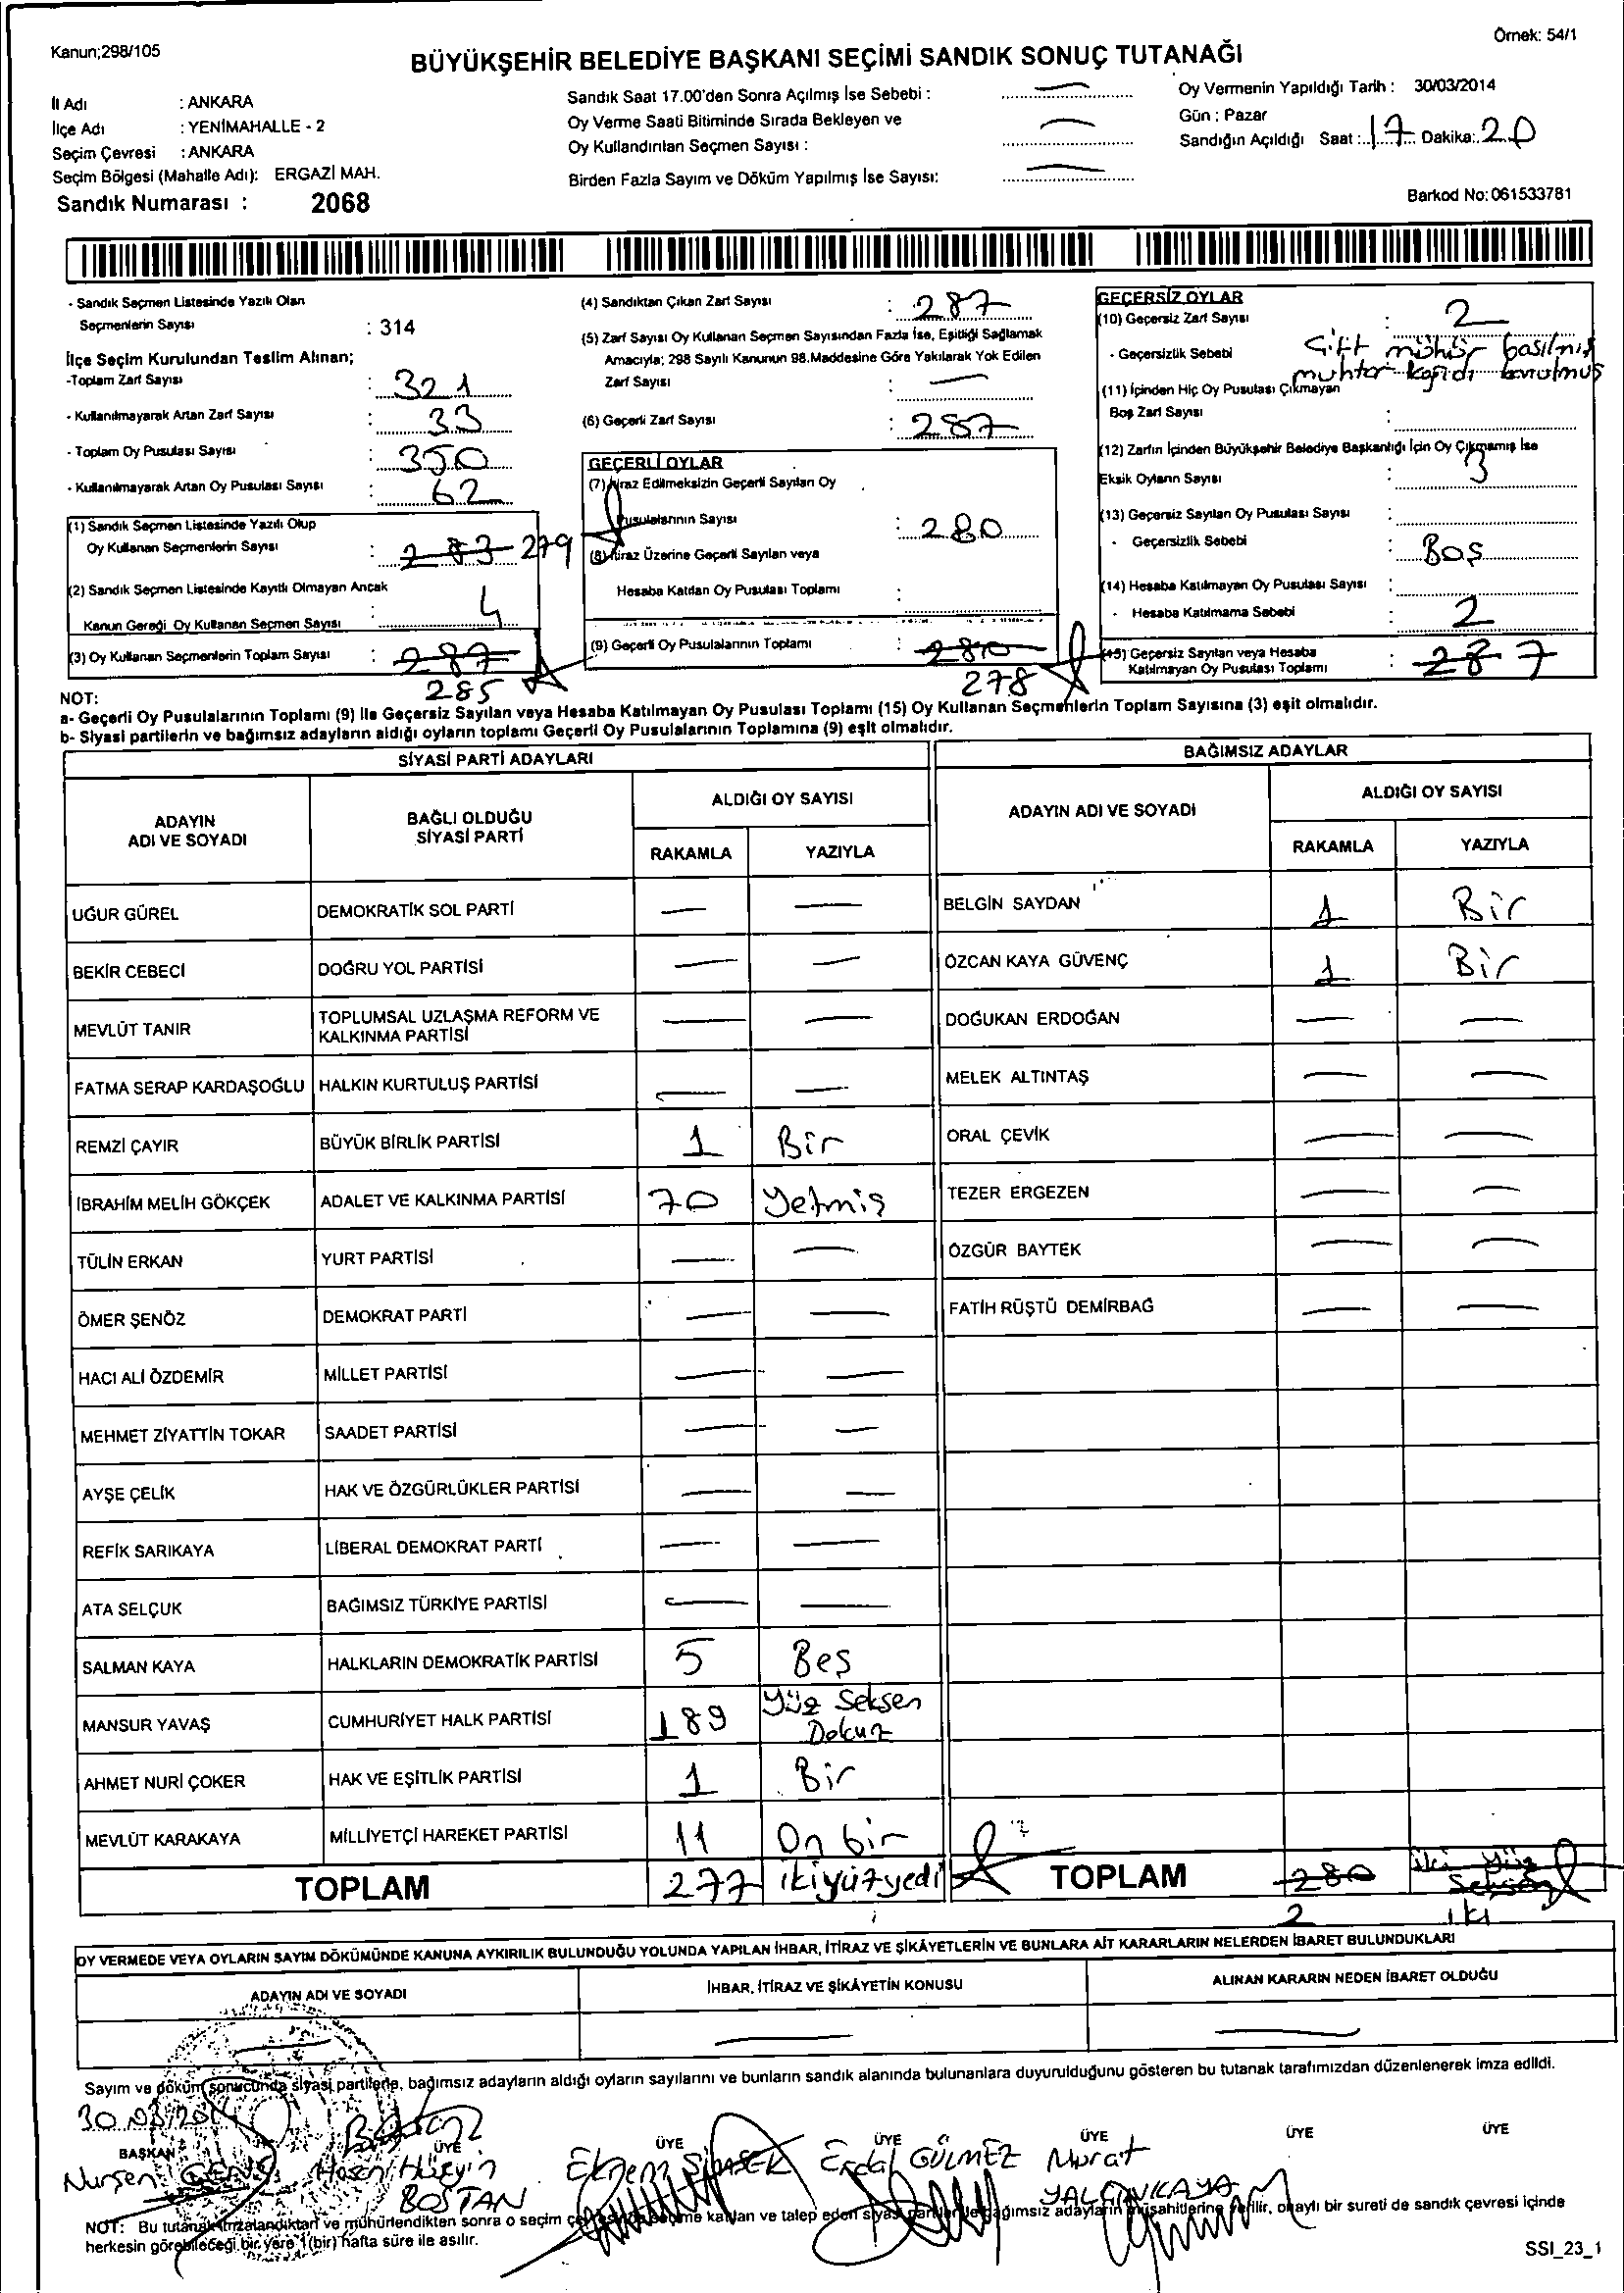 Kanun;298/105
Örnek: 54/1
BÜYÜKŞEHİR BELEDİYE BAŞKANI SEÇİMİ SANDIK SONUÇ TUTANAĞI
İl Adı : ANKARA
İlçe Adı : YENİMAHALLE - 2
Seçim Çevresi : ANKARA
Seçim Bölgesi (Mahalle Adı): ERGAZİ MAH.
Sandık Numarası : 2068
Sandık Saat 17.00'den Sonra Açılmış İse Sebebi :
Oy Verme Saati Bitiminde Sırada Bekleyen ve
Oy Kullandırılan Seçmen Sayısı :
Birden Fazla Sayım ve Döküm Yapılmış İse Sayısı:
Oy Vermenin Yapıldığı Tarih : 30/03/2014
Gün : Pazar
Sandığın Açıldığı Saat : 17 Dakika: 20
Barkod No: 061533781
- Sandık Seçmen Listesinde Yazılı Olan
Seçmenlerin Sayısı : 314
İlçe Seçim Kurulundan Teslim Alınan;
-Toplam Zarf Sayısı : 321
- Kullanılmayarak Artan Zarf Sayısı : 33
- Toplam Oy Pusulası Sayısı : 350
- Kullanılmayarak Artan Oy Pusulası Sayısı : 62
(1) Sandık Seçmen Listesinde Yazılı Olup
Oy Kullanan Seçmenlerin Sayısı : 283 279
(2) Sandık Seçmen Listesinde Kayıtlı Olmayan Ancak
Kanun Gereği Oy Kullanan Seçmen Sayısı : 4
(3) Oy Kullanan Seçmenlerin Toplam Sayısı : 287
285
(4) Sandıktan Çıkan Zarf Sayısı : 287
(5) Zarf Sayısı Oy Kullanan Seçmen Sayısından Fazla İse, Eşitliği Sağlamak
Amacıyla; 298 Sayılı Kanunun 98.Maddesine Göre Yakılarak Yok Edilen
Zarf Sayısı :
(6) Geçerli Zarf Sayısı : 287
GEÇERLİ OYLAR
(7) İtiraz Edilmeksizin Geçerli Sayılan Oy
Pusulalarının Sayısı : 280
(8) İtiraz Üzerine Geçerli Sayılan veya
Hesaba Katılan Oy Pusulası Toplamı :
(9) Geçerli Oy Pusulalarının Toplamı : 280
278
GEÇERSİZ OYLAR
(10) Geçersiz Zarf Sayısı : 2
- Geçersizlik Sebebi : Çift mühür basılmış
muhtar kağıdı konulmuş
(11) İçinden Hiç Oy Pusulası Çıkmayan
Boş Zarf Sayısı :
(12) Zarfın İçinden Büyükşehir Belediye Başkanlığı İçin Oy Çıkmamış İse
Eksik Oyların Sayısı : 3
(13) Geçersiz Sayılan Oy Pusulası Sayısı :
- Geçersizlik Sebebi : Boş
(14) Hesaba Katılmayan Oy Pusulası Sayısı :
- Hesaba Katılmama Sebebi : 2
(15) Geçersiz Sayılan veya Hesaba
Katılmayan Oy Pusulası Toplamı : 287
NOT:
a- Geçerli Oy Pusulalarının Toplamı (9) ile Geçersiz Sayılan veya Hesaba Katılmayan Oy Pusulası Toplamı (15) Oy Kullanan Seçmenlerin Toplam Sayısına (3) eşit olmalıdır.
b- Siyasi partilerin ve bağımsız adayların aldığı oyların toplamı Geçerli Oy Pusulalarının Toplamına (9) eşit olmalıdır.
SİYASİ PARTİ ADAYLARI
ADAYIN ADI VE SOYADI
BAĞLI OLDUĞU SİYASİ PARTİ
ALDIĞI OY SAYISI
RAKAMLA YAZIYLA
UĞUR GÜREL DEMOKRATİK SOL PARTİ
BEKİR CEBECİ DOĞRU YOL PARTİSİ
MEVLÜT TANIR TOPLUMSAL UZLAŞMA REFORM VE KALKINMA PARTİSİ
FATMA SERAP KARDAŞOĞLU HALKIN KURTULUŞ PARTİSİ
REMZİ ÇAYIR BÜYÜK BİRLİK PARTİSİ 1 Bir
İBRAHİM MELİH GÖKÇEK ADALET VE KALKINMA PARTİSİ 70 Yetmiş
TÜLİN ERKAN YURT PARTİSİ
ÖMER ŞENÖZ DEMOKRAT PARTİ
HACI ALİ ÖZDEMİR MİLLET PARTİSİ
MEHMET ZİYATTİN TOKAR SAADET PARTİSİ
AYŞE ÇELİK HAK VE ÖZGÜRLÜKLER PARTİSİ
REFİK SARIKAYA LİBERAL DEMOKRAT PARTİ
ATA SELÇUK BAĞIMSIZ TÜRKİYE PARTİSİ
SALMAN KAYA HALKLARIN DEMOKRATİK PARTİSİ 5 Beş
MANSUR YAVAŞ CUMHURİYET HALK PARTİSİ 189 Yüz Seksen Dokuz
AHMET NURİ ÇOKER HAK VE EŞİTLİK PARTİSİ 1 Bir
MEVLÜT KARAKAYA MİLLİYETÇİ HAREKET PARTİSİ 11 On bir
TOPLAM 277 ikiyüzyedi
BAĞIMSIZ ADAYLAR
ADAYIN ADI VE SOYADI
ALDIĞI OY SAYISI
RAKAMLA YAZIYLA
BELGİN SAYDAN 1 Bir
ÖZCAN KAYA GÜVENÇ 1 Bir
DOĞUKAN ERDOĞAN
MELEK ALTINTAŞ
ORAL ÇEVİK
TEZER ERGEZEN
ÖZGÜR BAYTEK
FATİH RÜŞTÜ DEMİRBAĞ
TOPLAM 280 iki Yüz Seksen
2 iki
OY VERMEDE VEYA OYLARIN SAYIM DÖKÜMÜNDE KANUNA AYKIRILIK BULUNDUĞU YOLUNDA YAPILAN İHBAR, İTİRAZ VE ŞİKÂYETLERİN VE BUNLARA AİT KARARLARIN NELERDEN İBARET BULUNDUKLARI
ADAYIN ADI VE SOYADI
İHBAR, İTİRAZ VE ŞİKÂYETİN KONUSU
ALINAN KARARIN NEDEN İBARET OLDUĞU
Sayım ve döküm sonucunda siyasi partilerle, bağımsız adayların aldığı oyların sayılarını ve bunların sandık alanında bulunanlara duyurulduğunu gösteren bu tutanak tarafımızdan düzenlenerek imza edildi.
30.03.2014
BAŞKAN ÜYE ÜYE ÜYE ÜYE ÜYE ÜYE
Nurşen GENÇ Hasan Hüseyin BOSTAN Ekrem ŞİMŞEK Erdal GÜLMEZ Murat YALÇINKAYA
NOT: Bu tutanak imzalandıktan ve mühürlendikten sonra o seçim çevresinde seçime katılan ve talep eden siyasi partilerle bağımsız adayların müşahitlerine verilir, onaylı bir sureti de sandık çevresi içinde
herkesin görebileceği bir yere 1(bir) hafta süre ile asılır.
SSI_23_1